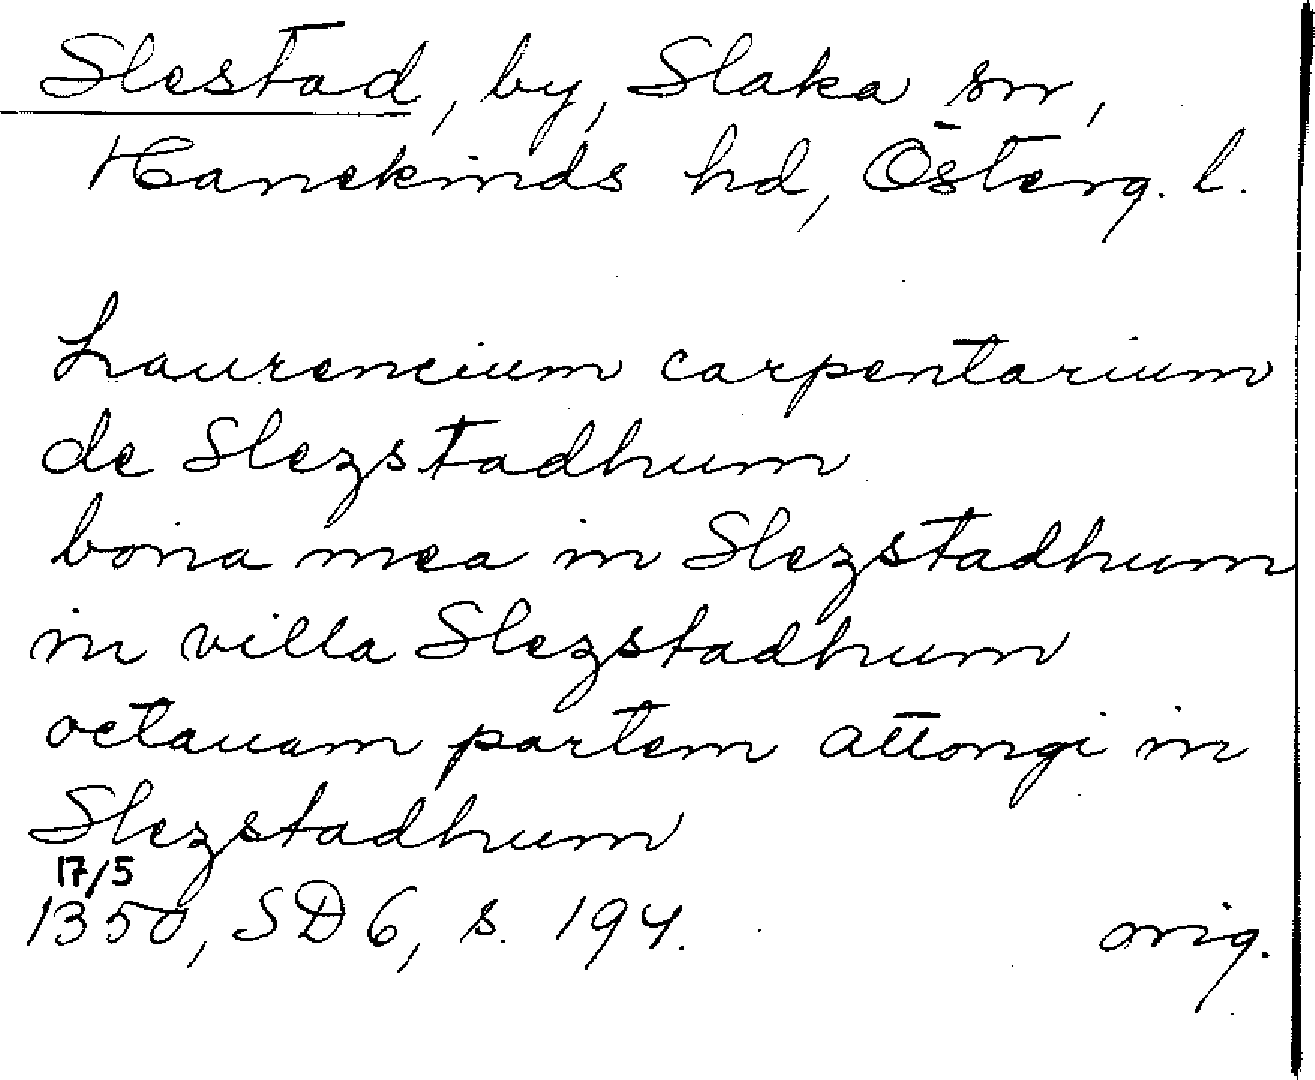 Slestad, by, Slaka sn,
Hanekinds hd, Österg. l.
Laurencium carpentarium
de Slezstadhum
bona mea in Slezstadhum
in villa Slezstadhum
octauam partem attongi in
Slezstadhum
17/5
1350, SD 6, s. 194. orig.